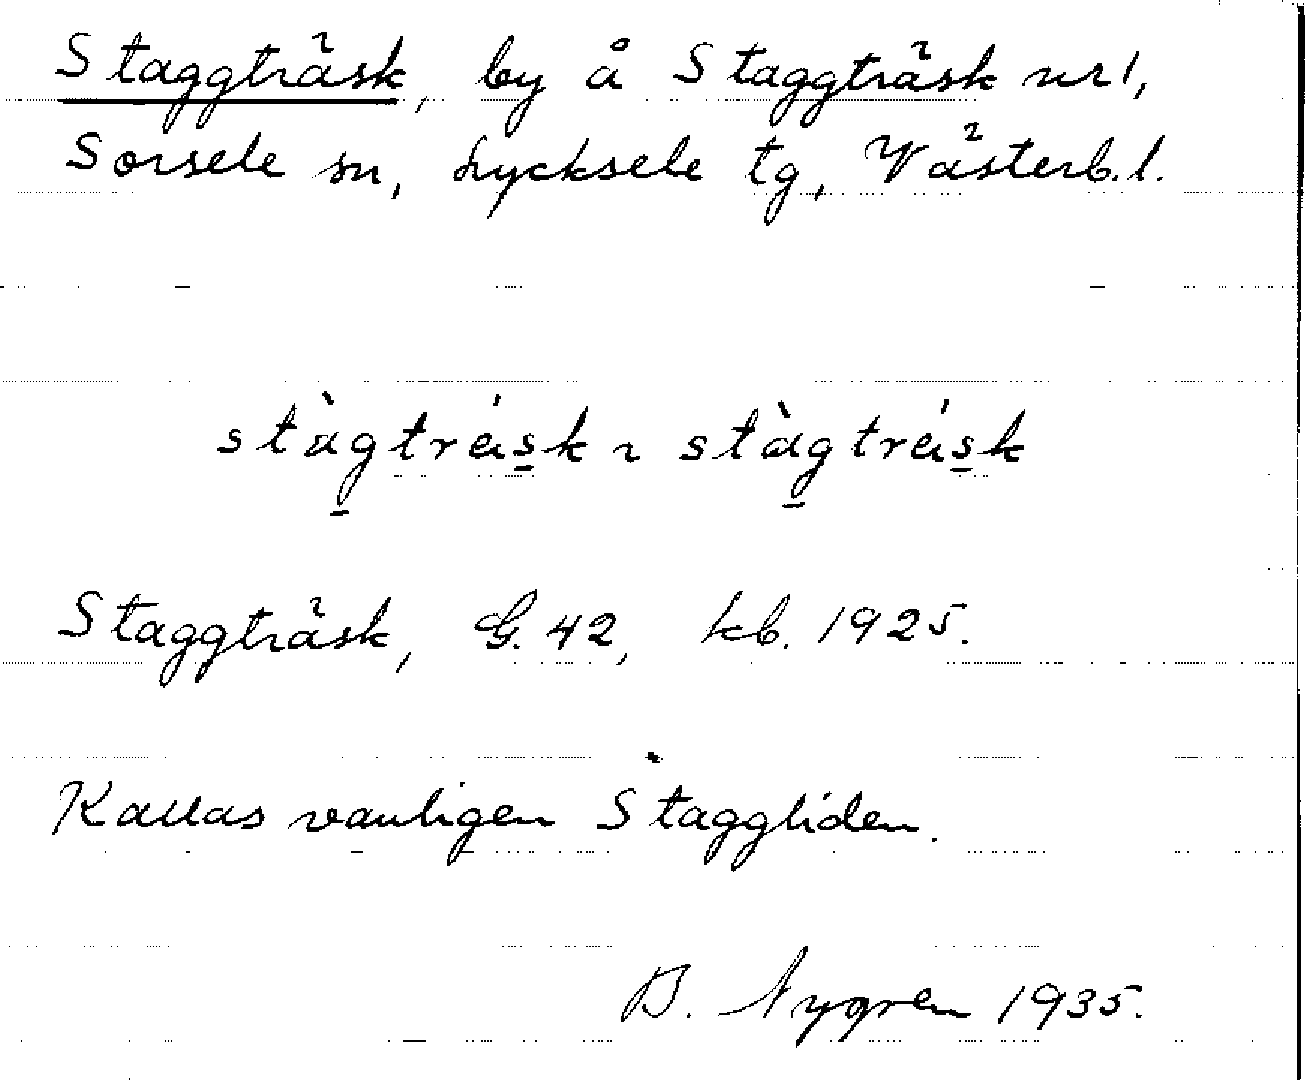 Staggträsk, by å Staggträsk nr 1,
Sorsele sn, Lycksele tg, Västerb. l.
stàg̲tréis̲k ~ stàg̲tréis̲k
Staggträsk, G. 42, kb. 1925.
Kallas vanligen Staggliden.
B. Nygren 1935.